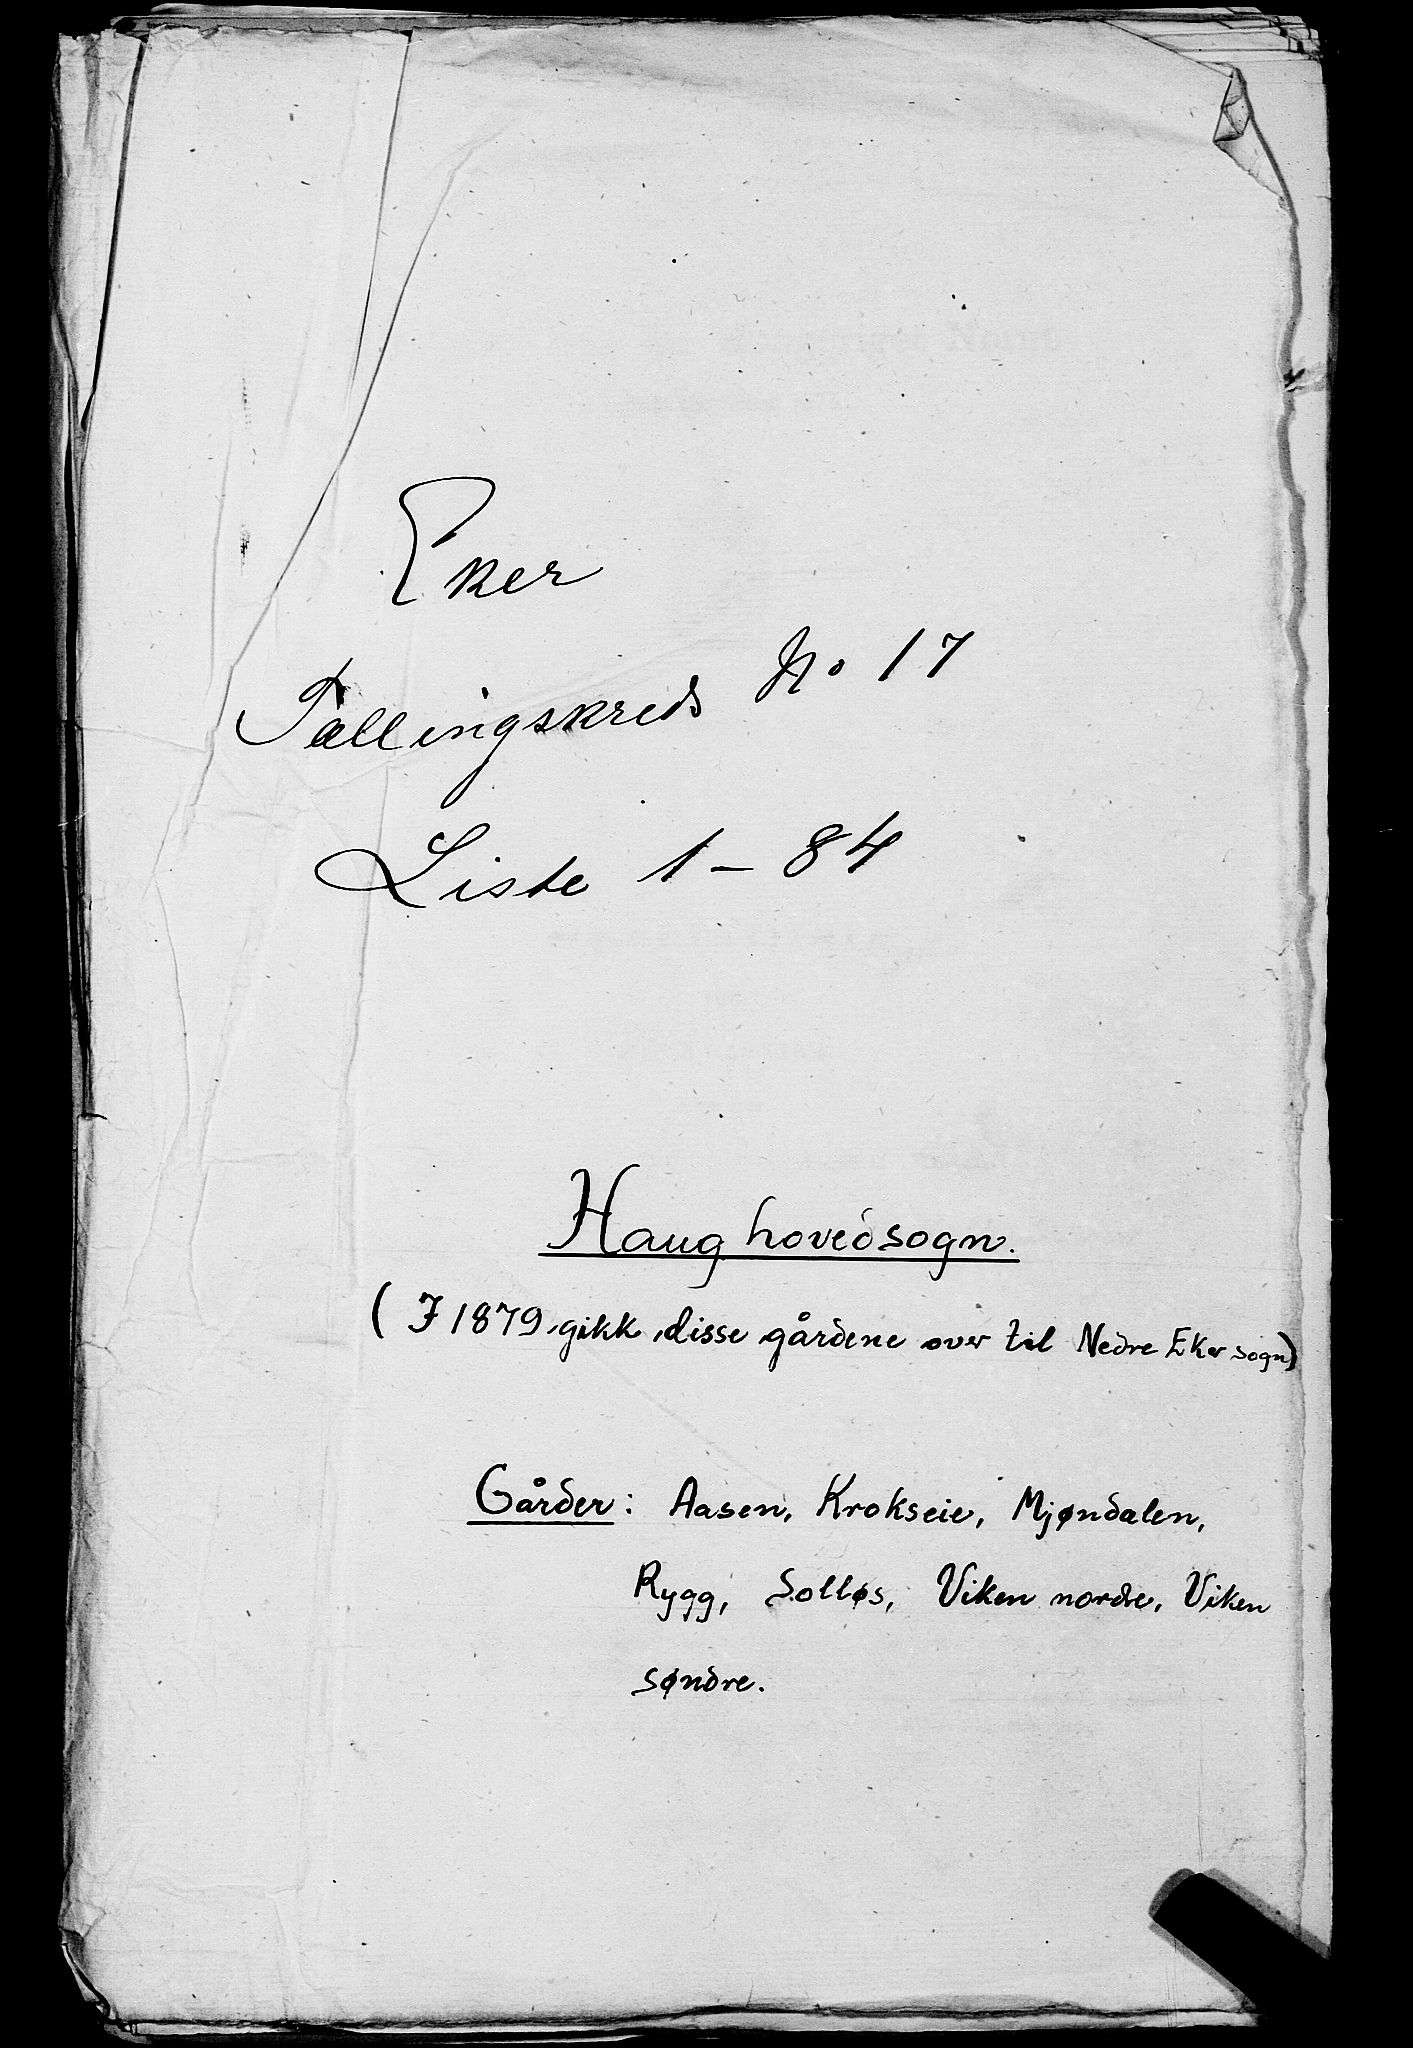 Eker
Tællingskreds No 17
Liste 1 – 84
Haug hovedsogn.
( I 1879 gikk disse gårdene over til Nedre Eker sogn)
Gårder: Aasen, Krokseie, Mjøndalen,
Rygg, Solløs, Viken nordre, Viken
søndre.